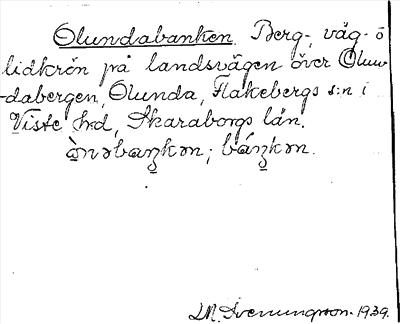 Olundabanken. Berg-, väg- o
lidkrön på landsvägen över Olun-
-dabergen, Olunda, Flakebergs s:n i
Viste hd, Skaraborgs län.
ànəbaŋkən; báŋkən.
M. Svenungsson. 1939.